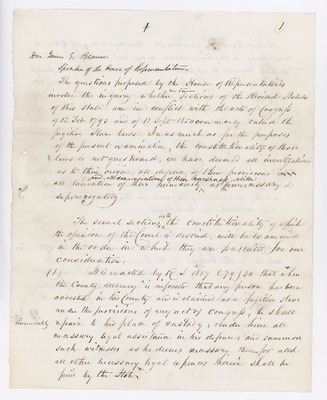 1
Hon James G. Blaine
Speaker of the House of Representatives
The questions proposed by the House of Representatives
under the inquiry whether certain sections of the Revised Statutes
of this State are in conflict with the acts of Congress
of 12 Feb 1793 and of 18 Sept 1850 commonly called the
fugitive slave laws. Inasmuch as for the purposes
of the present examination, the constitutionality of those
laws is not questioned, we have deemed all investigations
as to their origin, all defence of their provisions
all laudation of their humanity, as unnecessary &
supererogatory.
The several sections, the constitutionality of which
the opinion of the Court is desired, will be examined
in the order in which they are presented for our
consideration.
(1) It is enacted by R S 1857 C 79 § 20 that when
the County attorney is informed that any person has been
arrested in his County and is claimed as a fugitive slave
under the provisions of any act of Congress, he shall
immediately repair to his place of custody, render him all
necessary legal assistance in his defence, and summon
such witnesses as he deems necessary therefor and
all other necessary legal expences therein shall be
paid by the State.